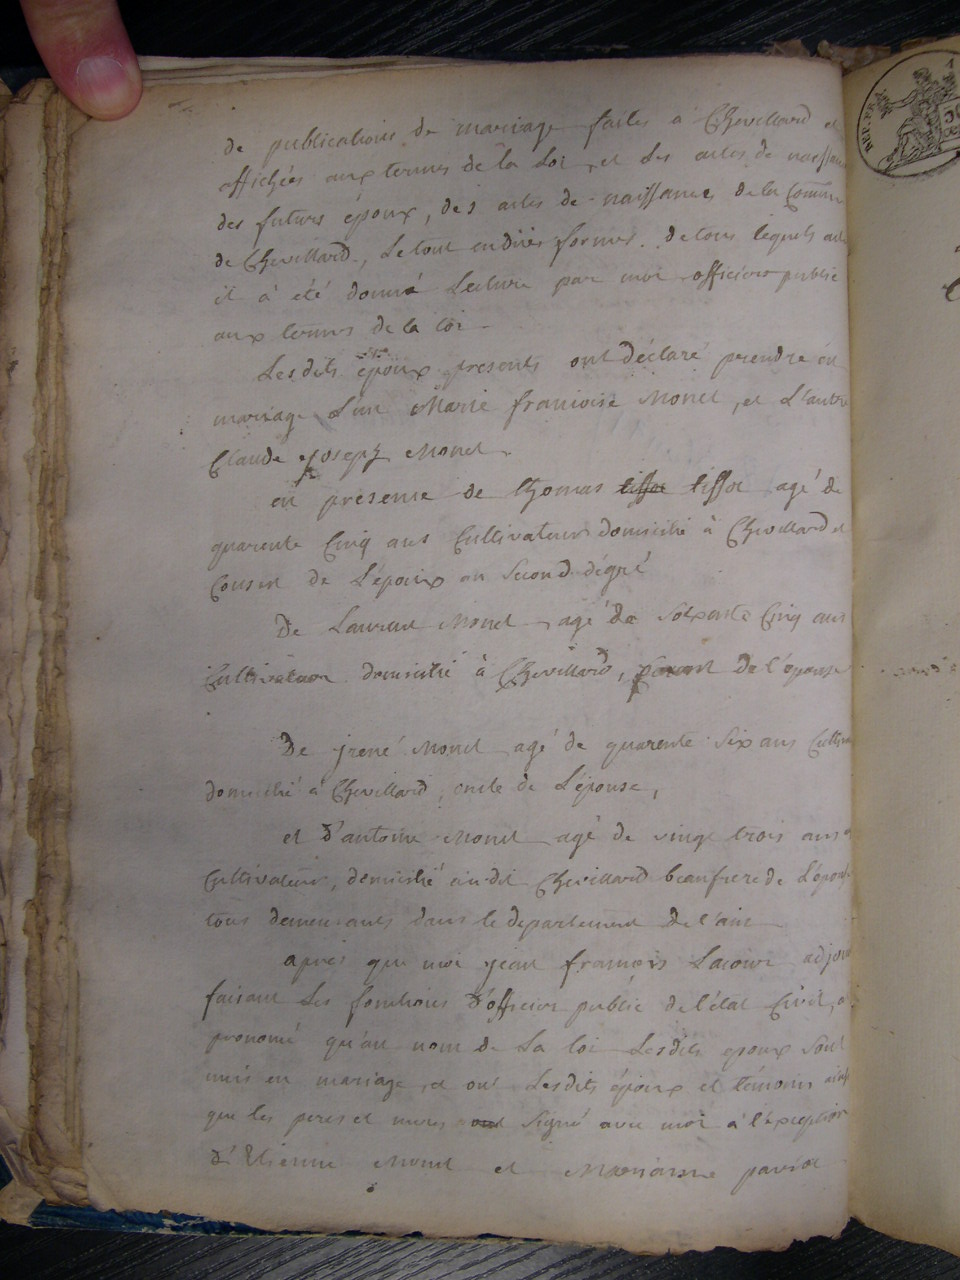 de publications de mariage faites a Chevillard et
affichées aux termes de la Loi, et Les actes de naissan
des futurs époux, des actes de naissances de la Commu
de Chevillard, Le tout en dües formes. de tous lequels act
il à été donné Lecture par moi officier public
aux termes de la loi.
Lesdits époux presents ont déclaré prendre en
mariage L'un Marie francoise Monet, et L'autre
Claude Joseph Monet.
en presense de thomas tissot tissot agé de
quarente Cinq ans Cultivateur domicilié à Chevillard et
Cousin de L'époux au Second dégré
De Laurent Monet agé de soixante Cinq ans
Cultivateur domicilié à Chevillard, de l'épouse
De jrené Monet agé de quarente Six ans Cultiva
domicilié a Chevillard, oncle de L'épouse,
et d'antoine Monet agé de vingt trois ans
Cultivateur, domicilié audit Chevillard beaufrere de L'épou
tous demeurants dans le departement de l'ain
apres que moi jean francois Lacour adjoint
faisant Les fonctions d'officier public de l'état Civil, a
prononcé qu'au nom de La loi Lesdits epoux Sont
unis en mariage, et ont Lesdits époux et témoins ainsi
que les peres et meres ont Signé avec moi à l'éxception
d'Etienne Monet et Marianne
REP. FR